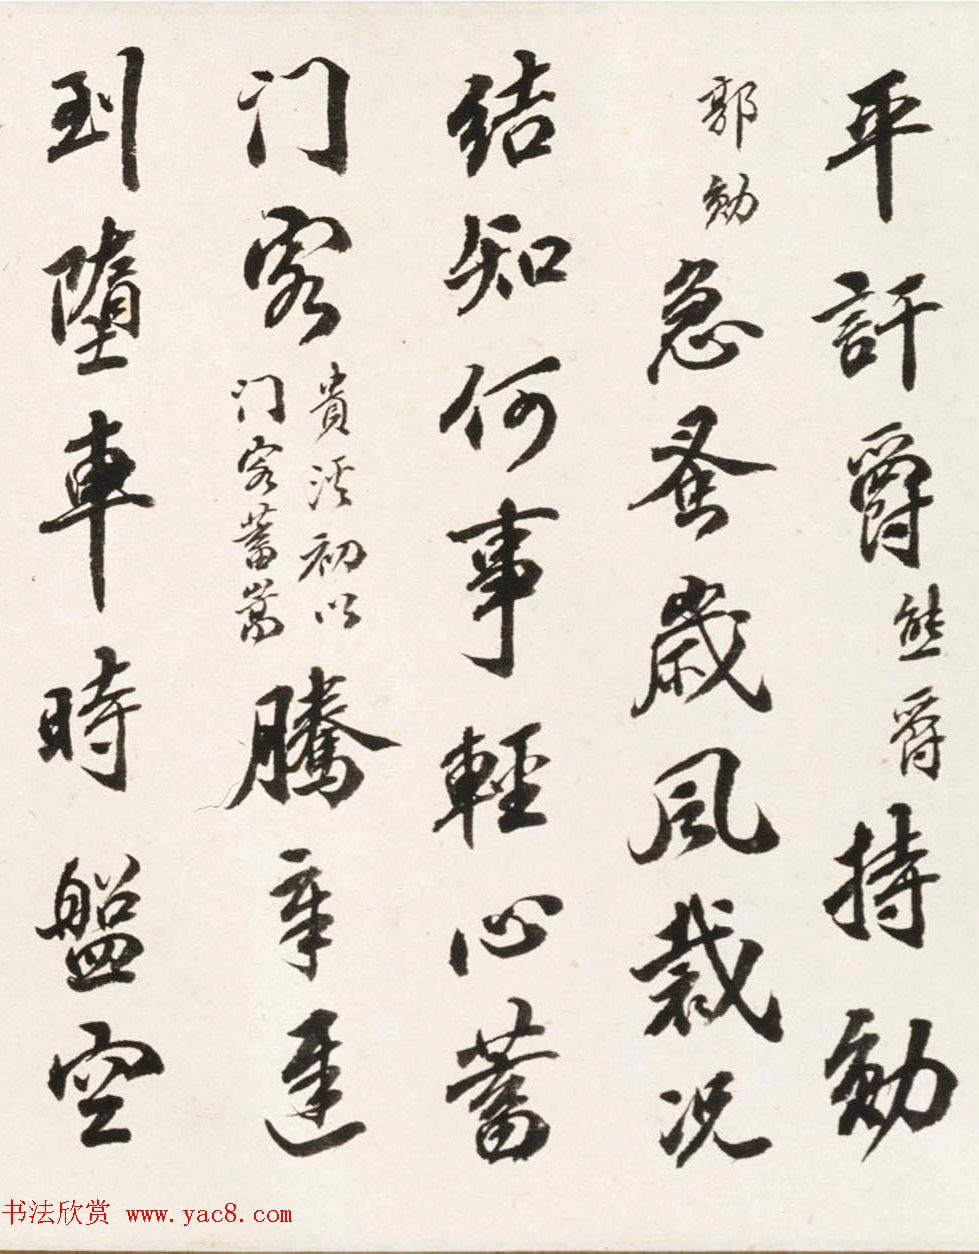 平訐爵熊爵持勛
郭勛急蚤歲風裁况
結知何事輕心蓄
门客貴溪初以门客蓄嵩騰章逮
到墮車時盤空
书法欣赏 www.yac8.com